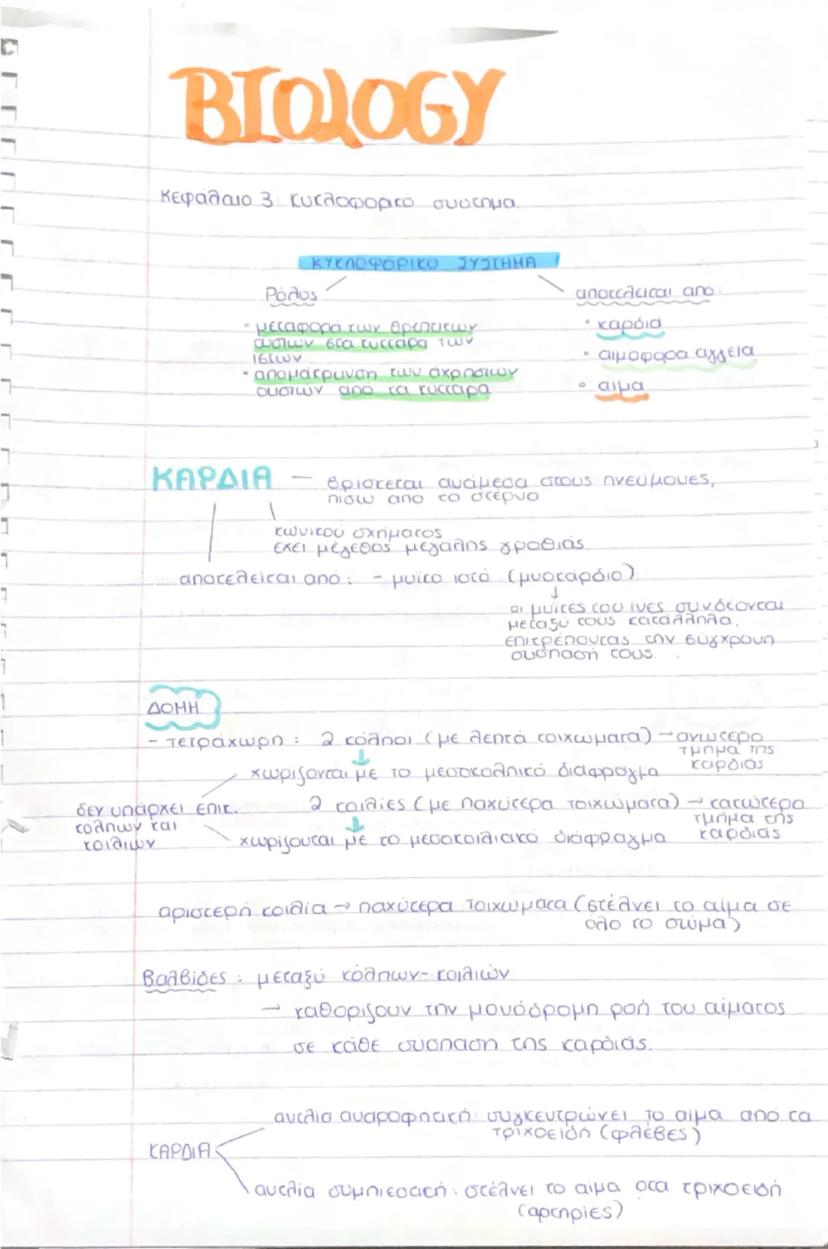 BIOLOGY
Κεφάλαιο 3: κυκλοφορικό σύστημα
ΚΥΚΛΟΦΟΡΙΚΟ ΣΥΣΤΗΜΑ
Ρόλος
· μεταφορά των θρεπτικων
ουσιων στα κυτταρα των
ιστων
· απομάκρυνση των άχρηστων
ουσιων από τα κυτταρα
αποτελείται απο:
· καρδιά
· αιμοφορα αγγεια
· αιμα
ΚΑΡΔΙΑ — βρισκεται ανάμεσα στους πνεύμονες,
πισω απο το στέρνο
κωνικού σχήματος
εχει μέγεθος μεγαλης γροθιάς
αποτελείται από: - μυϊκο ιστό (μυοκάρδιο)
↓
οι μυϊκές του ινες συνδέονται
μεταξύ τους καταλληλα,
επιτρέποντας την σύγχρονη
σύσπασή τους.
ΔΟΜΗ
- τετράχωρη: 2 κόλποι (με λεπτά τοιχώματα) → ανωτερο
τμημα της
καρδιας
↓
χωρίζονται με το μεσοκολπικό διαφραγμα
δεν υπάρχει επικ.
κολπων και
κοιλιων
2 κοιλίες (με παχύτερα τοιχώματα) → κατωτερο
τμημα της
καρδιας
↓
χωρίζονται με το μεσοκοιλιακό διάφραγμα
αριστερή κοιλία → παχύτερα τοιχωματα (στέλνει το αίμα σε
όλο το σώμα)
Βαλβίδες: μεταξύ κόλπων-κοιλιών
→ καθορίζουν την μονόδρομη ροή του αίματος
σε κάθε σύσπαση της καρδιάς.
ΚΑΡΔΙΑ
αντλια αναροφητική: συγκεντρώνει το αίμα από τα
τριχοειδή (φλέβες)
αντλια συμπιεστική: στέλνει το αιμα στα τριχοειδή
(αρτηρίες)